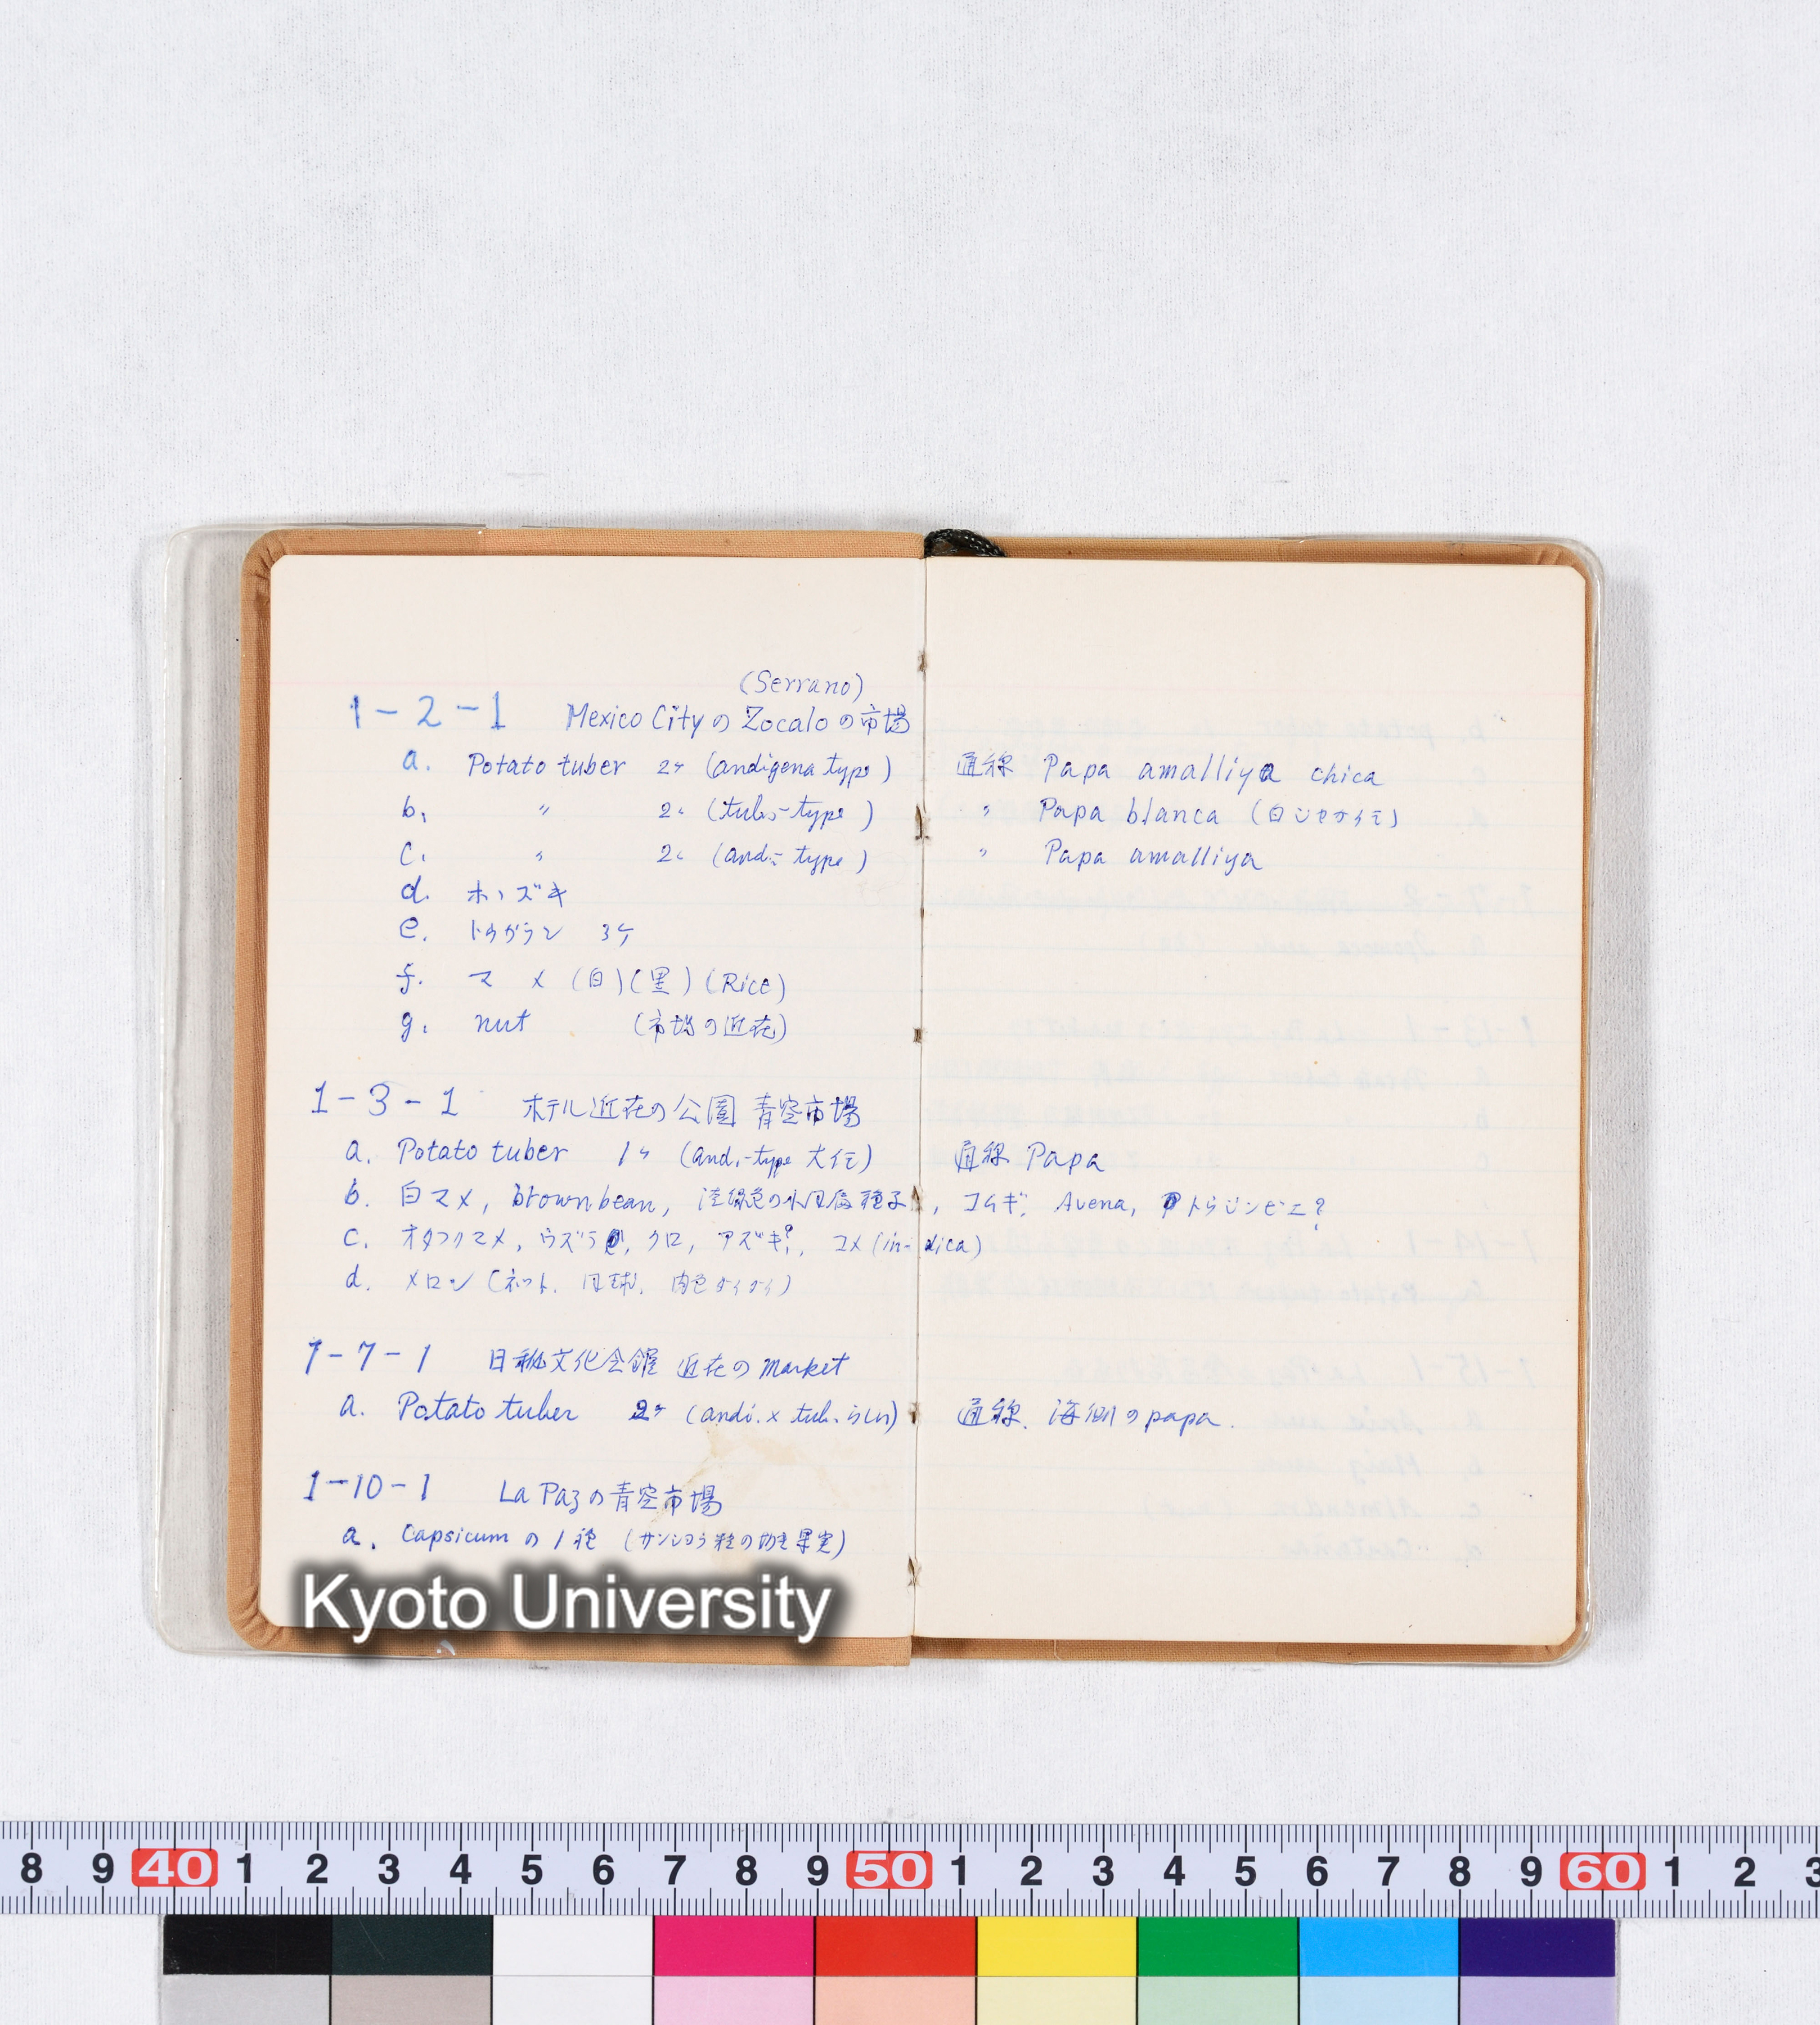 (Serrano)
1-2-1 Mexico Cityの Zocaloの市場
a. Potato tuber 2ヶ (andigena type) 通称 Papa amalliya chica
b. 〃 2ヶ (tub.-type) 〃 Papa blanca (白ジャガイモ)
c. 〃 2ヶ (andi-type) 〃 Papa amalliya
d. ホヽズキ
e. トウガラシ 3ケ
f. マメ (白)(黒)(Rice)
g. nut (市場の近在)
1-3-1 ホテル近在の公園 青空市場
a. Potato tuber 1ヶ (andi-type 大イモ) 通称 Papa
b. 白マメ, brown bean, 淡緑色の小円扁種子, コムギ, Avena, トウジンビエ?
c. オタフクマメ, ウズラ, クロ, アズキ?, コメ (in-dica)
d. メロン (ネット, 円球, 肉色ダイダイ)
1-7-1 日秘文化会館 近在の market
a. Potato tuber 2ヶ (andi. x tub. らしい) 通称. 海側の papa.
1-10-1 La Pazの青空市場
a. Capsicum の1種 (サンショウ粒の如き果実)
Kyoto University
8 9 40 1 2 3 4 5 6 7 8 9 50 1 2 3 4 5 6 7 8 9 60 1 2 3